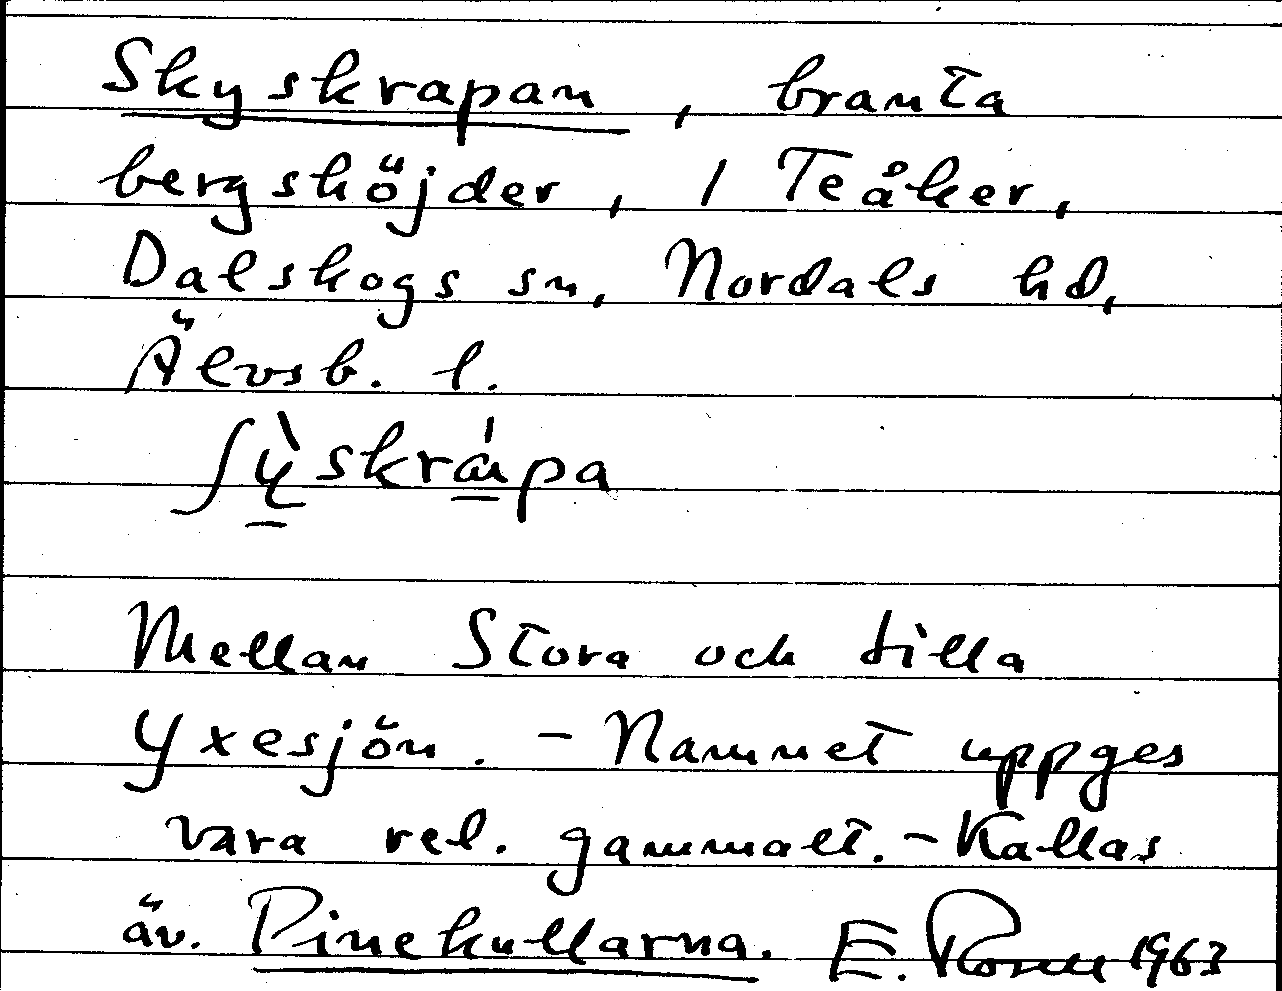 Skyskrapan, branta
bergshöjder, / Teåker,
Dalskogs sn, Nordals hd,
Älvsb. l.
ʃỳskrápa
Mellan Stora och Lilla
Yxesjön. - Namnet uppges
vara rel. gammalt. - Kallas
äv. Pinekullarna. E. Rosell 1963